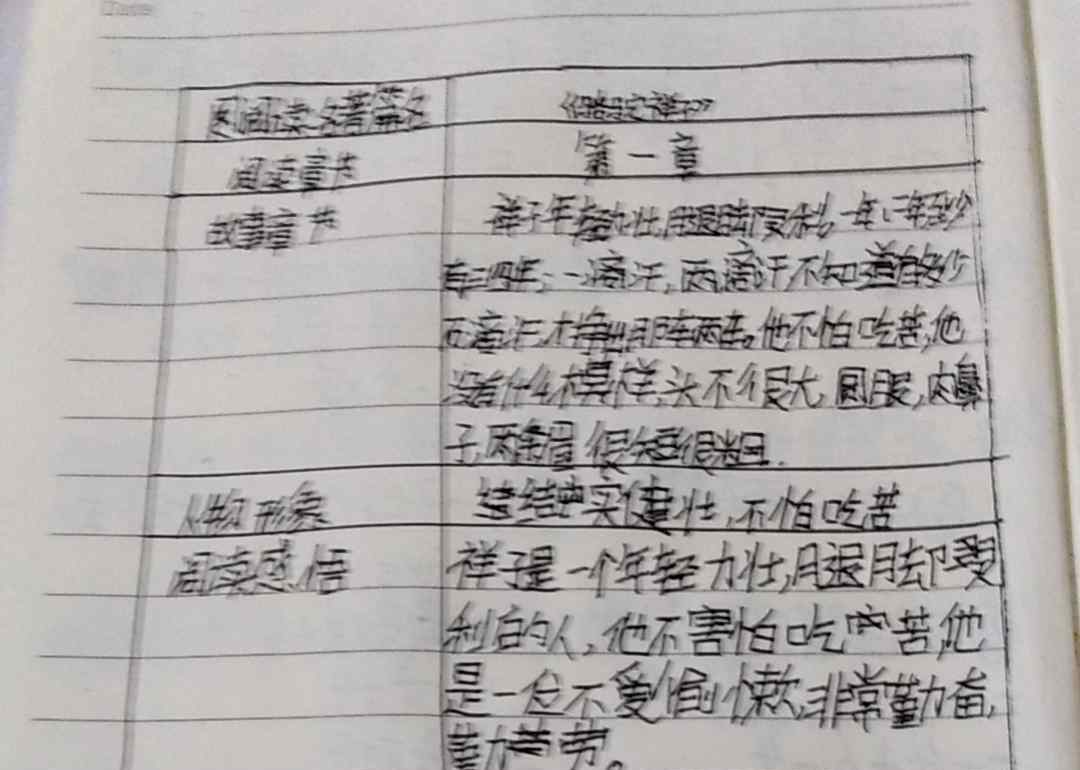 Date:
阅读名著篇名 《骆驼祥子》
阅读章节 第一章
故事章节 祥子年轻力壮,腿脚灵利,一年,二年至少
有三四年;一滴汗,两滴汗不知道多少
万滴汗,才挣出那车。他不怕吃苦,他
没有什么模样,头不很大,圆眼,肉鼻
子,两条眉很短很粗.
人物形象 结结实实健壮,不怕吃苦
阅读感悟 祥子是一个年轻力壮,腿脚灵
利的人,他不害怕吃苦,他
是一位不爱偷懒,非常勤奋,
勤劳。